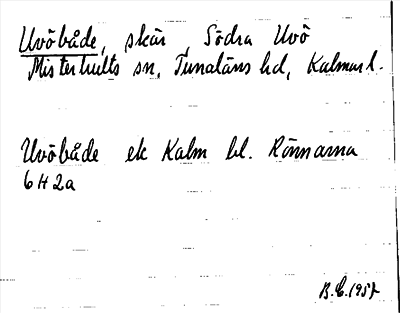 Uvöbåde, skär, Södra Uvö
Misterhults sn, Tunaläns hd, Kalmar l.
Uvöbåde ek Kalm bl. Rönnarna
6H2a
B.E. 1957